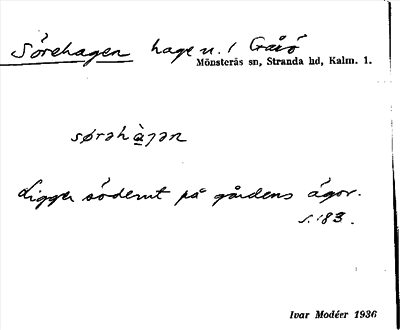 Sörehagen hage n. 1 Gåsö
Mönsterås sn, Stranda hd, Kalm. l.
sørəhàɡən
Ligger söderut på gårdens ägor.
s. 183.
Ivar Modéer 1936